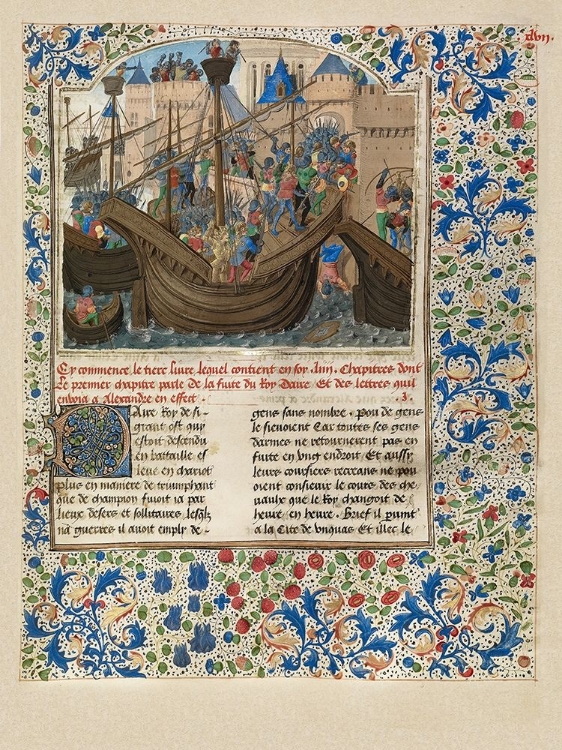 .dvii.
Cy commence le tiers livre lequel contient en soy .xiiii. Chapitres dont
Le premier chapitre parle de la fuite du Roy Daire Et des lettres quil
envoia a Alexandre en effect.
Daire Roy de si
grant ost qui
estoit descendu
en bataille es
leve en chariot
plus en maniere de triumphant
que de champion fuioit ia par
lieux desers et sollitaires lesqlz
na guerres il avoit emply de
gens sans nombre. pou de gens
le sieuoient Car toutes ses gens
darmes ne retournerent pas en
fuite en ung endroit Et aussy
leurs coursiers recreans ne pou
oient consieuir le cours des che
vaulx que le Roy changoit de
heure en heure. Brief il vint
a la Cite de unquas Et illec le